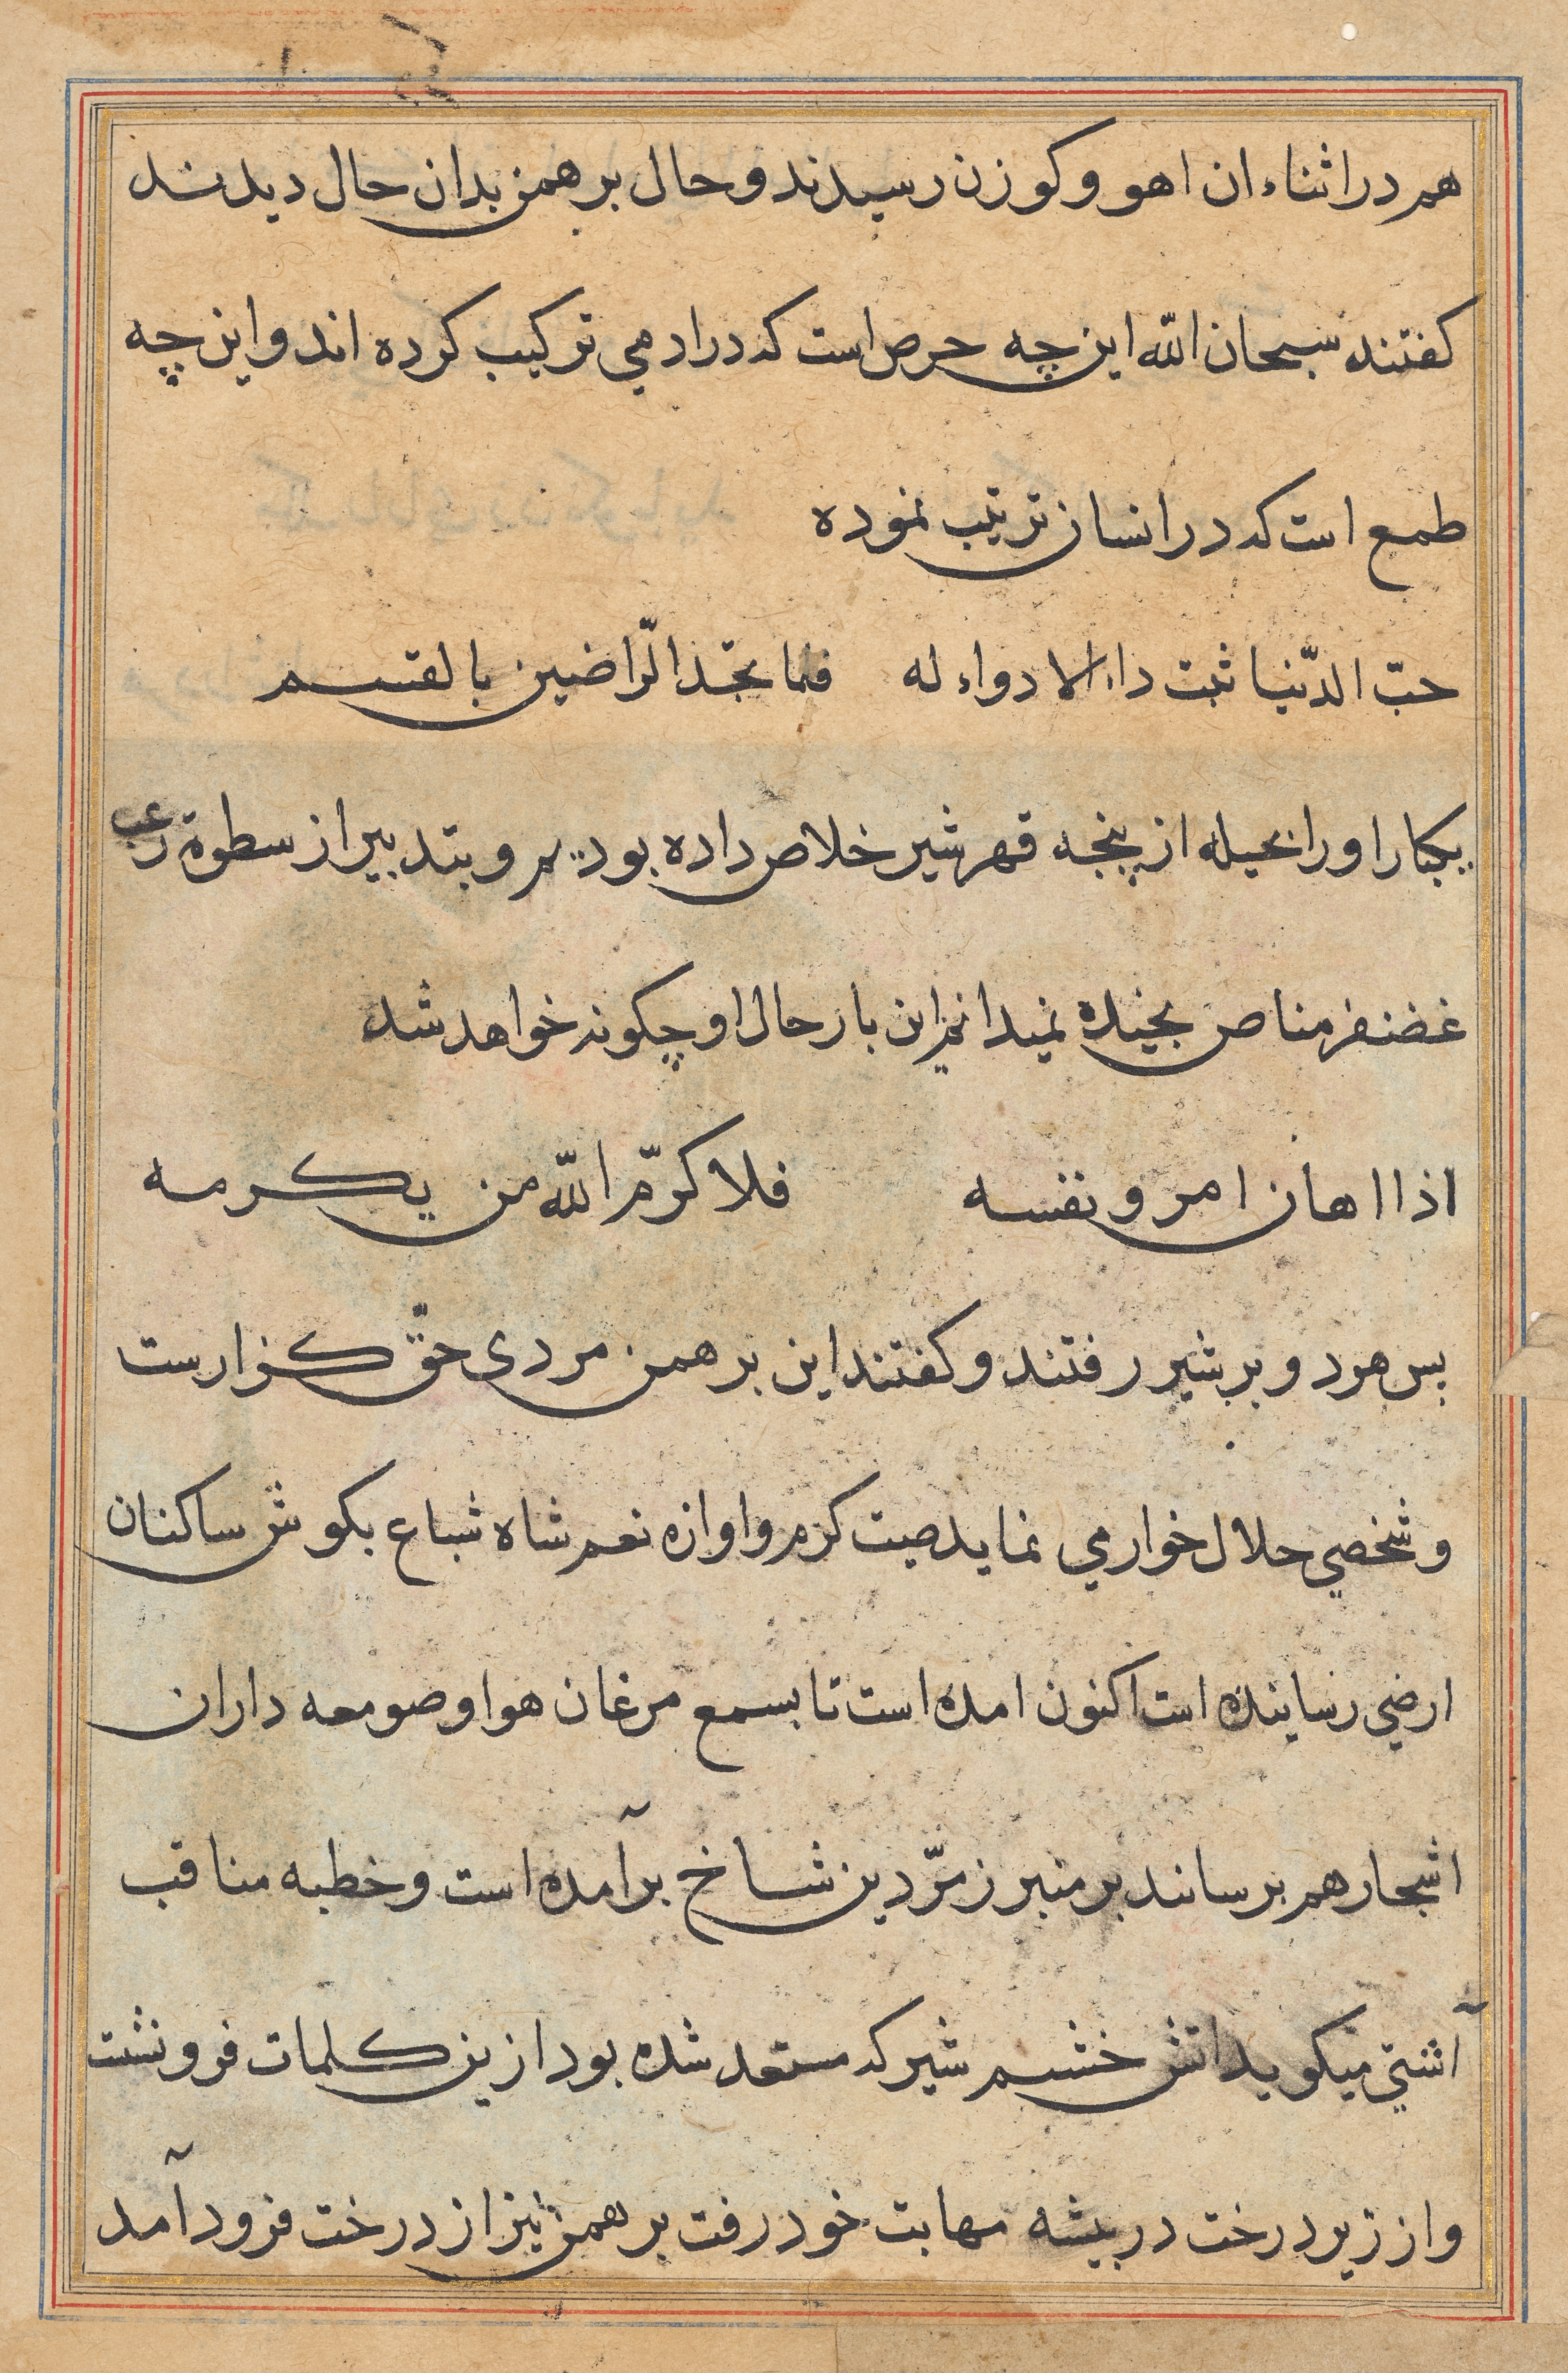 هم در اثناء ان اهو و کوزن رسیدند و حال برهمن بدان حال دیدند
کفتند سبحان الله این چه حرص است که در ادمی ترکیب کرده اند و این چه
طمع است که در انسان ترتیب نموده
حبّ الدّنیا ثبت داء لا دواء له فلما تجد الرّاضین بالقسم
یکبار اورا بحیله از پنجه قهر شیر خلاص داده بودیم و بتدبیر از سطوة رعب
غضنفر مناص بخیده نمیدانم این بار حال او چکونه خواهد شد
اذا اهان امرو نفسه فلا کرّم الله من یکرمه
پس هردو بر شیر رفتند و کفتند این برهمن مردی حقّ کزارست
و شخصی حلال خوار می نماید صیت کرم و اوازه نعم شاه سباع بکوش ساکنان
ارضی رسانیده است اکنون امده است تا بسمع مرغان هوا و صومعه داران
اشجار هم برساند بر منبر زمرّدین شاخ برآمده است و خطبه مناقب
آشتی میکوید اتش خشم شیر که مستعد شده بود ازین کلمات فرونشت
و از زیر درخت در بیشه مهابت خود رفت برهمن نیز از درخت فرود آمد